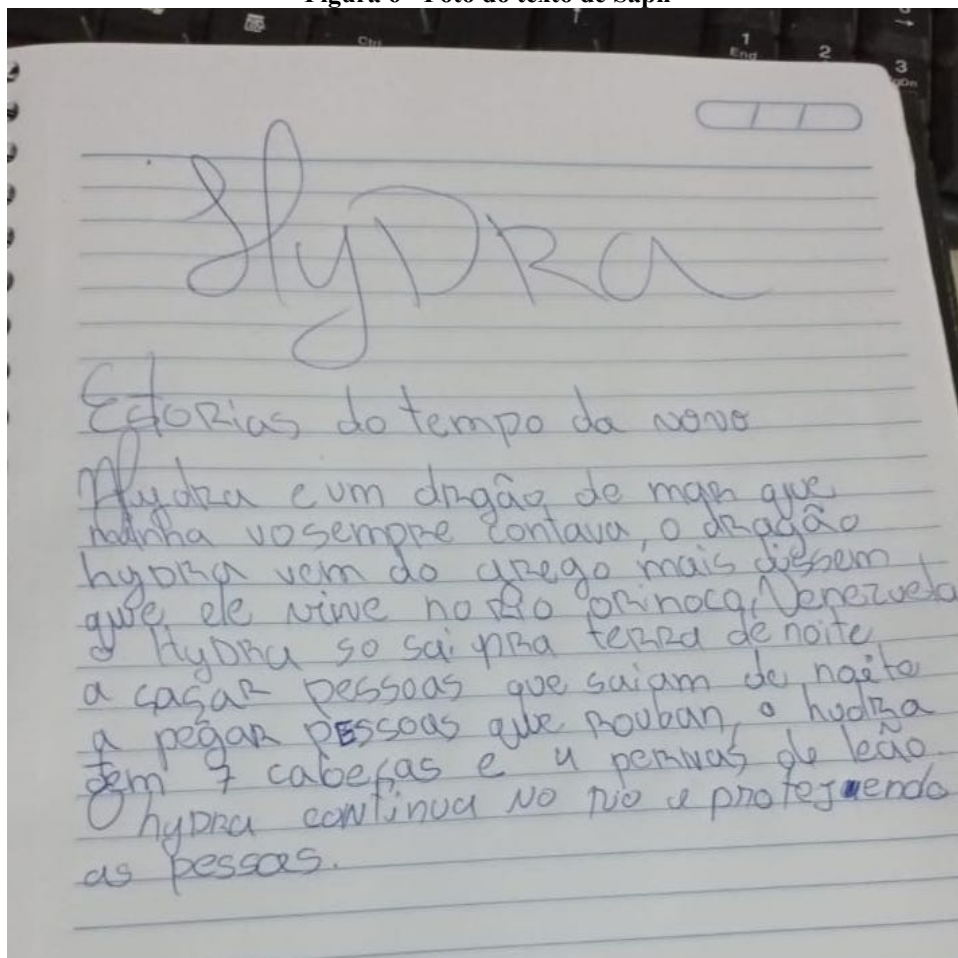 Ctrl
1
End
2
3
PgDn
HyDRa
EstoRias do tempo da vovo
Hydra e um dragão de mar que
minha vo sempre contava, o dragão
hyDRa vem do grego mais dissem
que ele vive no Rio orinoco, Venezuela
o HyDRa so sai pra terra de noite
a casar pessoas que saiam de noite
a pegar pessoas que Rouban, o hydra
tem 7 cabesas e 4 pernas de leão.
O hyDRa continua No rio e protejuendo
as pessoas.